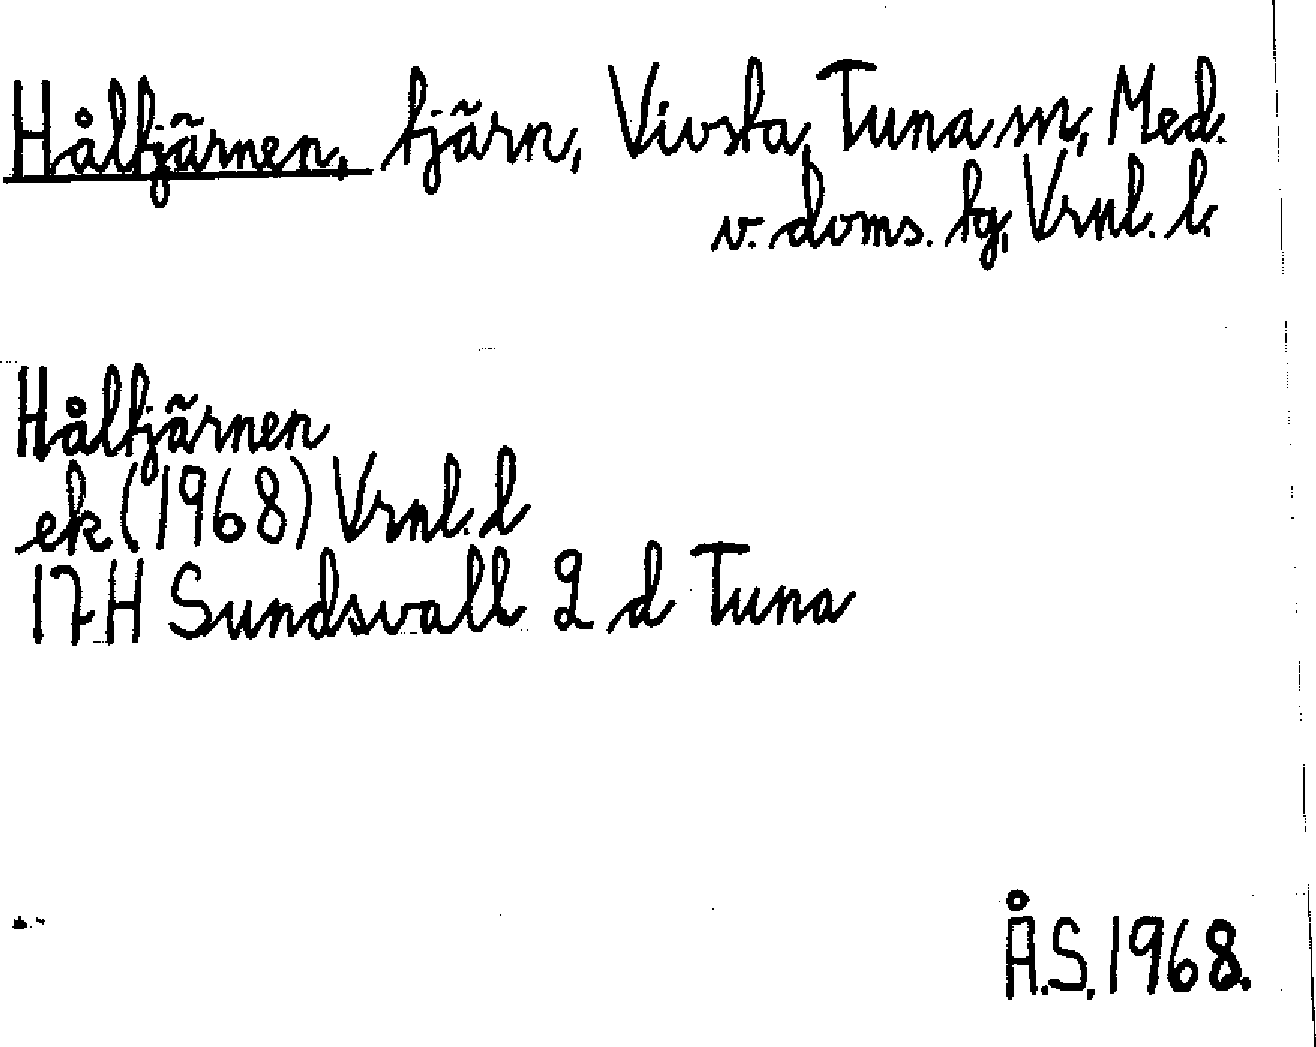 Håltjärnen, tjärn, Vivsta, Tuna sn, Med.
v. doms. tg, Vrnl. l.
Håltjärnen
ek (1968) Vrnl. l
17H Sundsvall 2 d Tuna
Å.S. 1968.